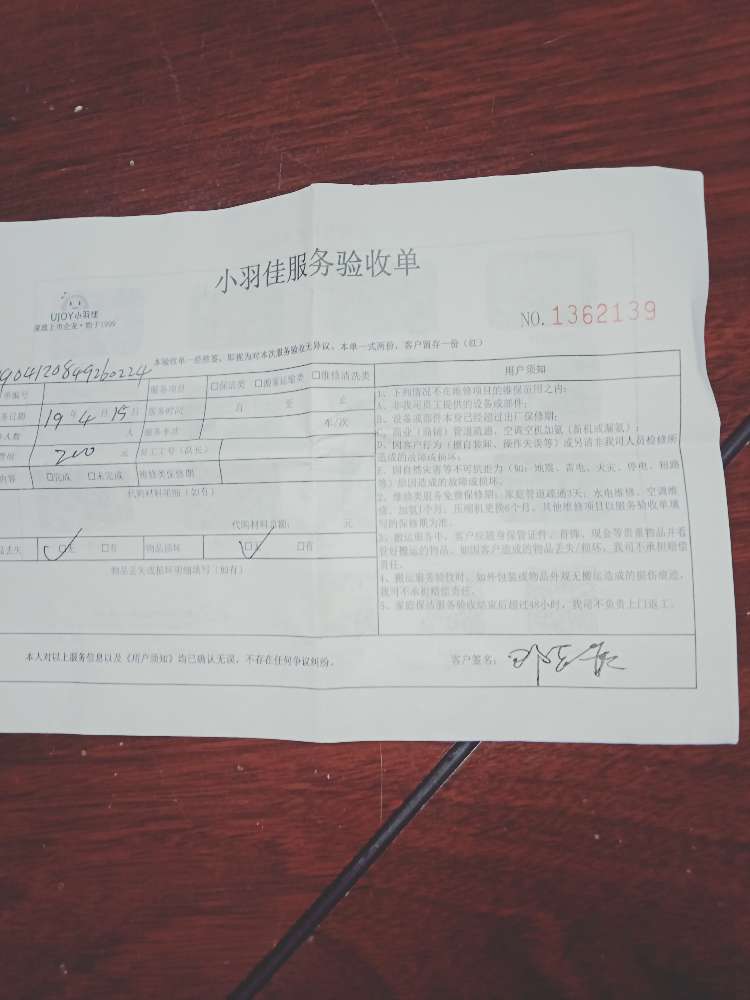 小羽佳服务验收单
UJOY小羽佳
家政上市企业·始于1999
NO.1362139
本验收单一经签签,即视为对本次服务验收无异议。本单一式两份,客户留存一份(红)
单编号
904120849260224
服务项目 □保洁类 □搬家运输类 □维修清洗类
务日期 19年4月15日 服务时间 自 至 止
人数 人 服务车次 车/次
200 元 员工工号(队长)
内容 □完成 □未完成 维修类保修期
代购材料明细(如有)
代购材料总额: 元
品丢失 □无 □有 物品损坏 □无 □有
物品丢失或损坏明细填写(如有)
用户须知
1、下列情况不在维修项目的维保范围之内:
A、非我司员工提供的设备或部件;
B、设备或部件本身已经超过出厂保修期;
C、商业(商铺)管道疏通,空调空机加氨(新机或漏氨);
D、因客户行为(擅自装卸、操作失误等)或另请非我司人员检修所
造成的故障或损坏。
E、因自然灾害等不可抗拒力(如:地震、雷电、火灾、停电、短路
等)原因造成的故障或损坏。
2、维修类服务免费保修期:家庭管道疏通3天;水电维修、空调维
修、加氨1个月,压缩机更换6个月。其他维修项目以服务验收单填
写的保修期为准。
3、搬运服务中,客户应随身保管证件、首饰、现金等贵重物品并看
管好搬运的物品。如因客户造成的物品丢失/损坏,我司不承担赔偿
责任。
4、搬运服务验收时,如外包装或物品外观无搬运造成的损伤痕迹,
我司不承担赔偿责任。
5、家庭保洁服务验收结束后超过48小时,我司不负责上门返工。
本人对以上服务信息以及《用户须知》均已确认无误,不存在任何争议纠纷。
客户签名: